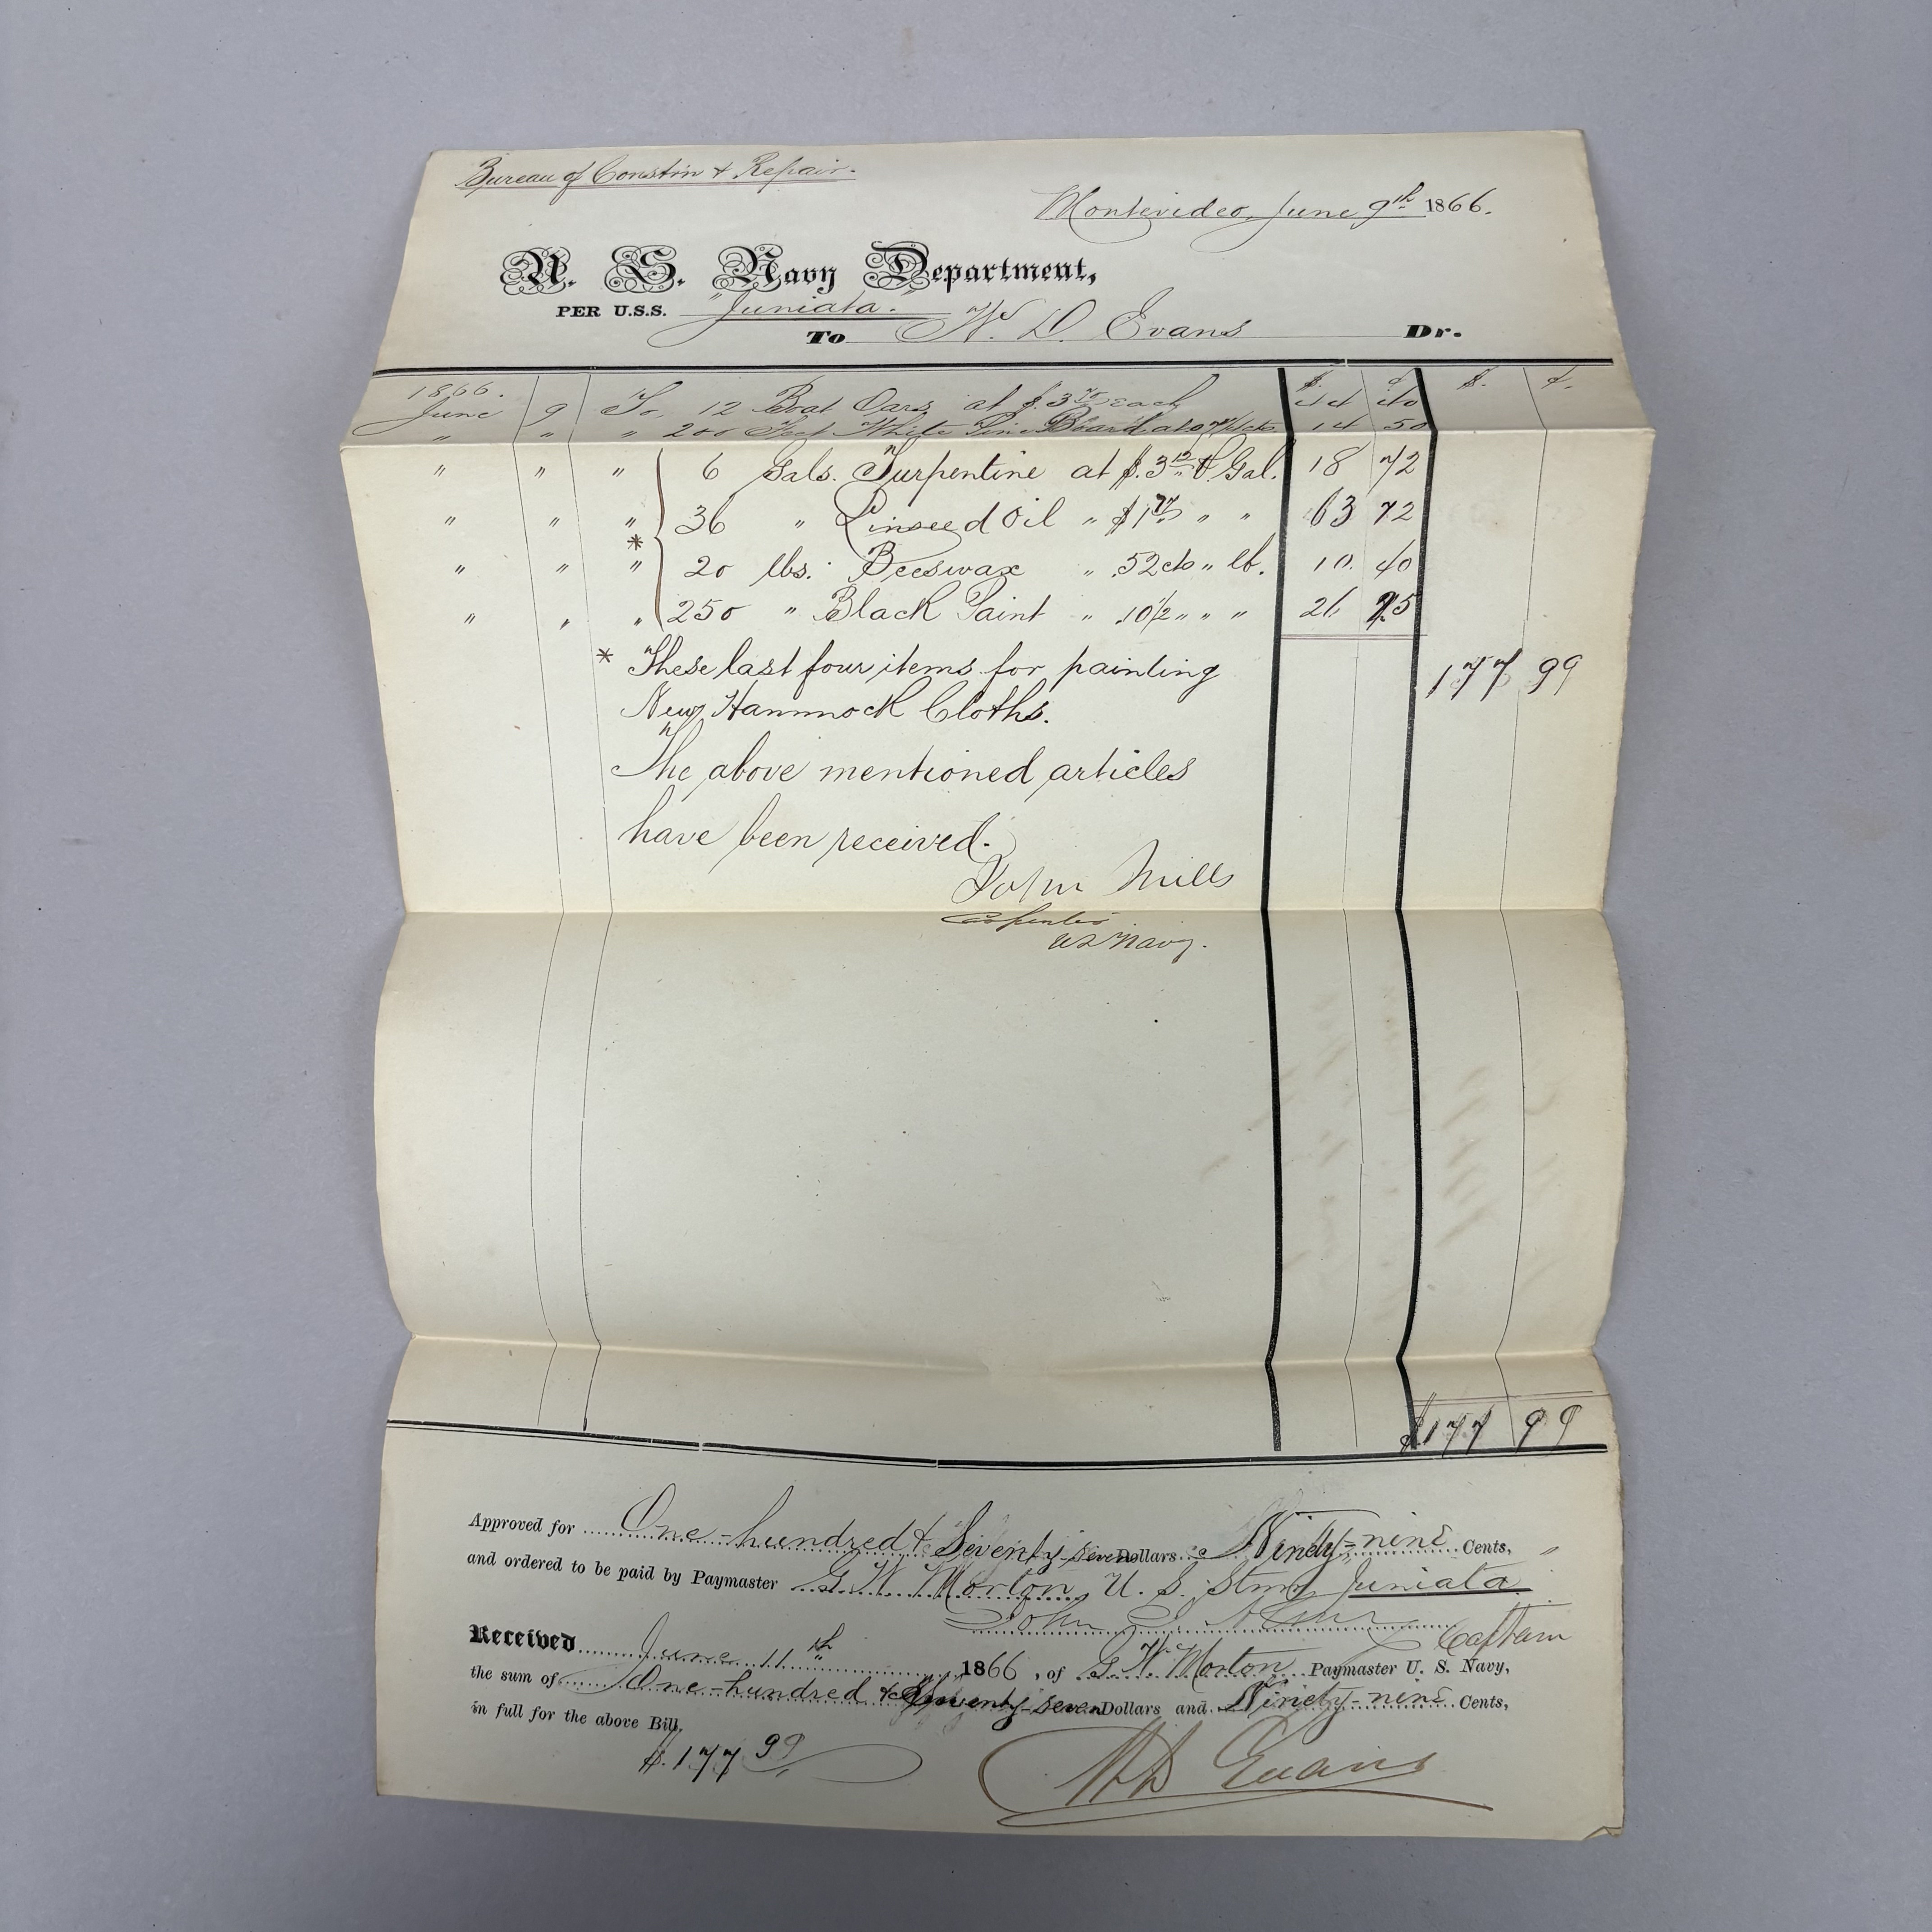 Bureau of Constin & Repair.
Montevideo, June 9th 1866.
U. S. Navy Department,
PER U.S.S. "Juniata."
To W. D. Evans Dr.
1866. $. ¢. $. ¢.
June 9 To, 12 Boat Oars at $.3.70 each 44 40
" " " 200 Feet White Pine Board at 07 1/4 cts 14 50
" " " 6 Gals. Turpentine at $.3.12 Gal. 18 72
" " " 36 " Linseed Oil " $1.77 " " 63 72
*
" " " 20 lbs. Beeswax " .52 cts " lb. 10. 40
" " " 250 " Black Paint " .10 1/2 " " " 26 25
* These last four items for painting 177 99
New Hammock Cloths.
The above mentioned articles
have been received.
John Mills
Carpenter
US Navy.
$177 99
Approved for One-hundred & Seventy-seven Dollars & Ninety-nine Cents,
and ordered to be paid by Paymaster G. W. Morton, U. S. Stmr "Juniata"
John
Captain
Received June 11th 1866, of G. W. Morton Paymaster U. S. Navy,
the sum of One-hundred & Seventy-seven Dollars and Ninety-nine Cents,
in full for the above Bill.
$.177 99
W D Evans